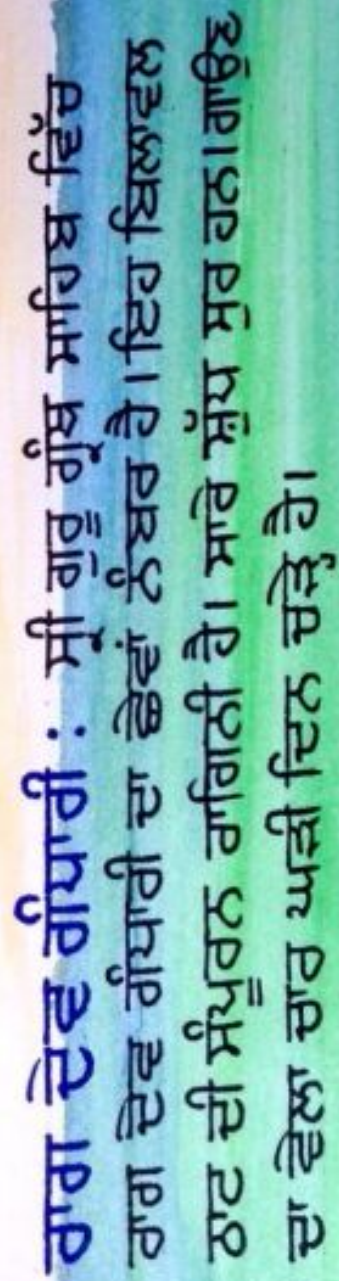 ਰਾਗ ਦੇਵ ਗੰਧਾਰੀ : ਸ੍ਰੀ ਗੁਰੂ ਗ੍ਰੰਥ ਸਾਹਿਬ ਵਿੱਚ
ਰਾਗ ਦੇਵ ਗੰਧਾਰੀ ਦਾ ਛੇਵਾਂ ਨੰਬਰ ਹੈ। ਇਹ ਬਿਲਾਵਲ
ਠਾਟ ਦੀ ਸੰਪੂਰਨ ਰਾਗਿਨੀ ਹੈ। ਸਾਰੇ ਸ਼ੁੱਧ ਸੁਰ ਹਨ। ਗਾਉਣ
ਦਾ ਵੇਲਾ ਚਾਰ ਘੜੀ ਦਿਨ ਚੜ੍ਹੇ ਹੈ।